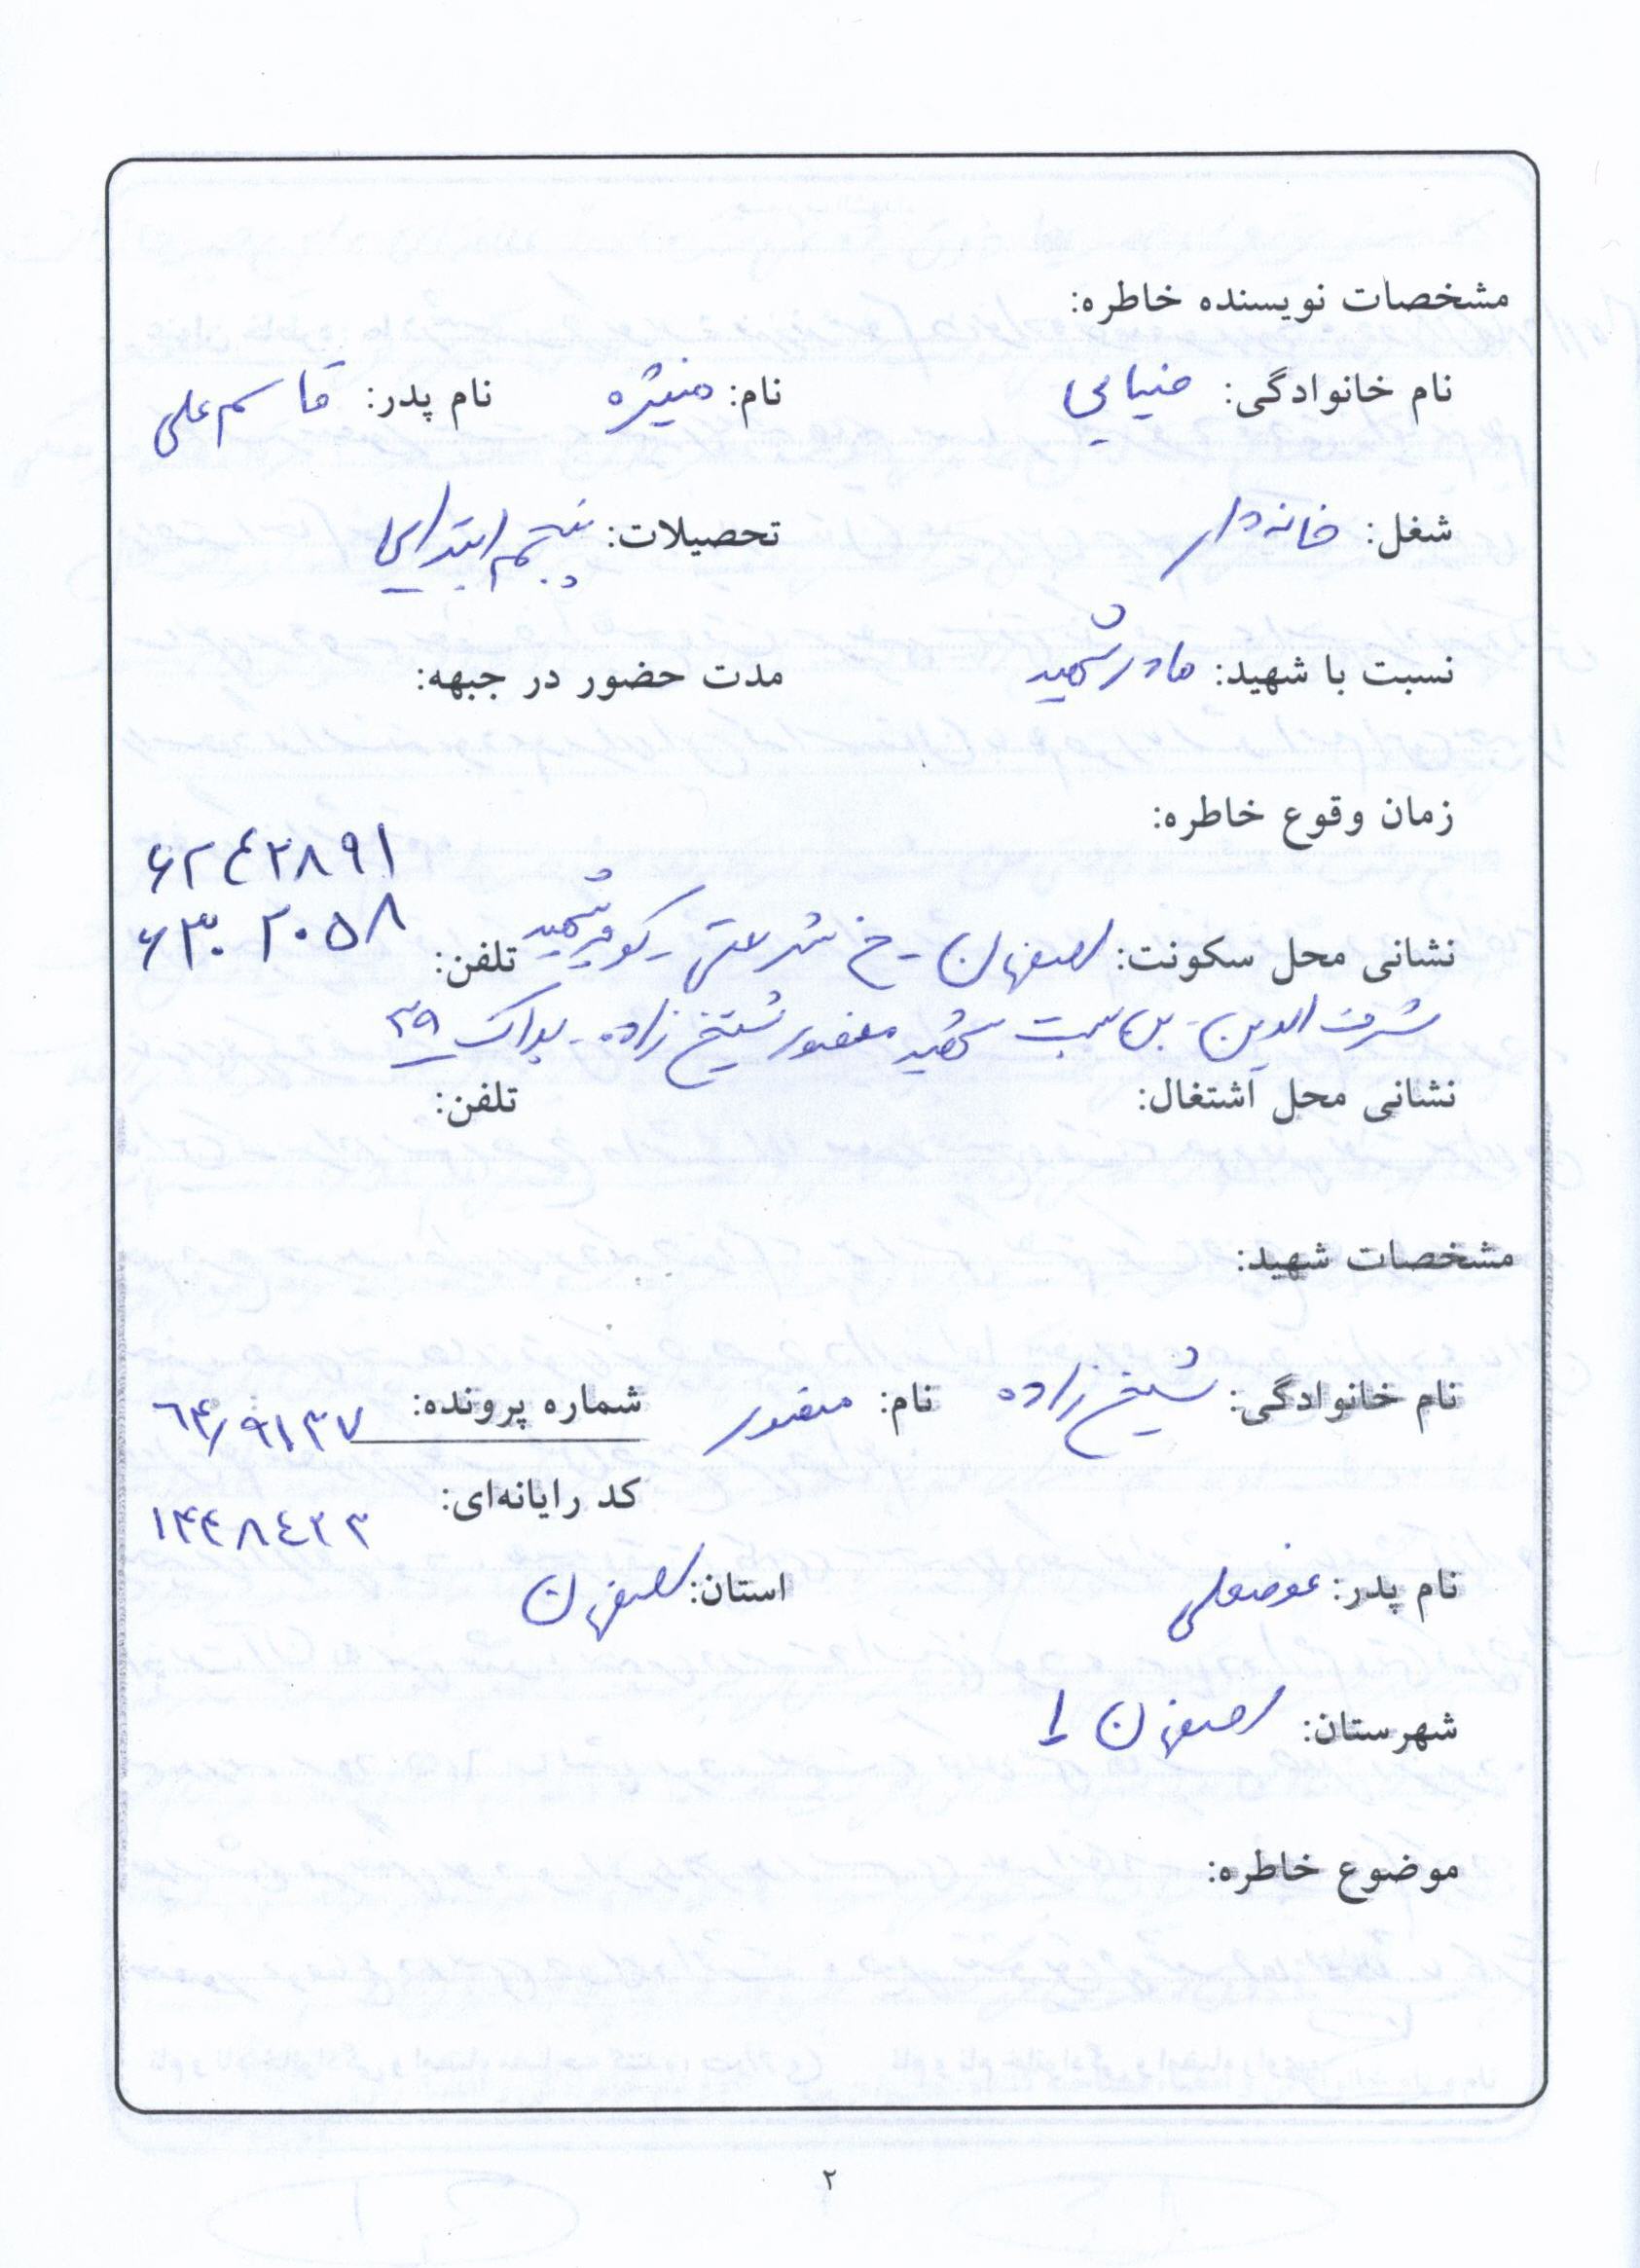 مشخصات نویسنده خاطره:
نام خانوادگی: ضیایی نام: منیژه نام پدر: قاسم علی
شغل: خانه دار تحصیلات: پنجم ابتدایی
نسبت با شهید: مادر شهید مدت حضور در جبهه:
زمان وقوع خاطره:
۶۲۴۲۸۹۱
نشانی محل سکونت: اصفهان - خ شریعتی - کوی شهید تلفن: ۶۳۰۲۰۵۸
شرف الدین - بن بست شهید منصور شیخ زاده - پلاک ۳۹
نشانی محل اشتغال: تلفن:
مشخصات شهید:
نام خانوادگی: شیخ زاده نام: منصور شماره پرونده: ۶۴/۹۱۳۷
کد رایانه‌ای: ۱۴۴۸۴۲۳
نام پدر: عوضعلی استان: اصفهان
شهرستان: اصفهان ۱
موضوع خاطره:
۲